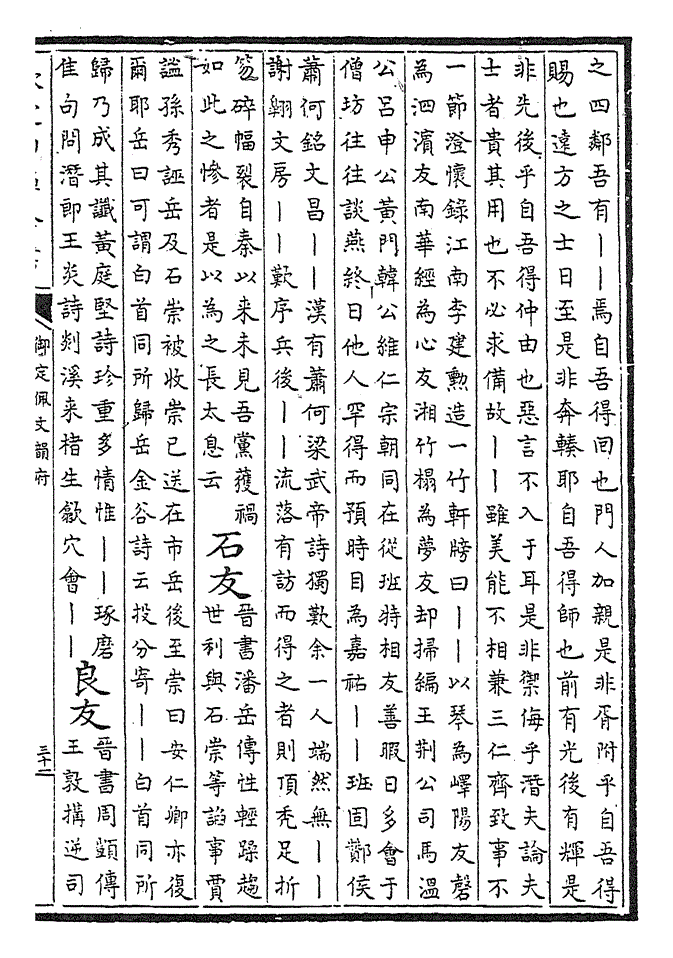 之四鄰吾有——焉自吾得回也門人加親是非胥附乎自吾得
賜也遠方之士日至是非奔輳耶自吾得師也前有光後有輝是
非先後乎自吾得仲由也惡言不入于耳是非禦侮乎潛夫論夫
士者貴其用也不必求備故——雖美能不相兼三仁齊致事不
一節澄懷錄江南李建勲造一竹軒牓曰——以琴為嶧陽友磬
為泗濱友南華經為心友湘竹榻為夢友却掃編王荆公司馬溫
公呂申公黄門韓公維仁宗朝同在從班特相友善暇日多會于
僧坊往往談燕終日他人罕得而預時目為嘉祐——班固酇侯
蕭何銘文昌——漢有蕭何梁武帝詩獨歎余一人端然無——
謝翱文房——歎序兵後——流落有訪而得之者則頂秃足折
笺碎幅裂自秦以来未見吾黨獲禍
如此之慘者是以為之長太息云
石友
晉書潘岳傳性輕躁趨
世利與石崇等諂事賈
謐孫秀誣岳及石崇被收崇已送在市岳後至崇曰安仁卿亦復
爾耶岳曰可謂白首同所歸岳金谷詩云投分寄——白首同所
歸乃成其讖黄庭堅詩珍重多情惟——琢磨
隹句問潛郎王炎詩剡溪来楮生歙穴會——
良友
晉書周顗傳
王敦搆逆司
御定佩文韻府